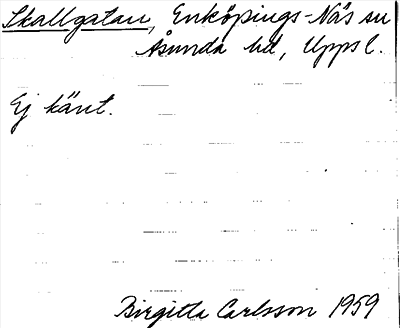 Skallgatan, Enköpings-Näs sn
Åsunda hd, Uppsl.
Ej känt.
Birgitta Carlsson 1959